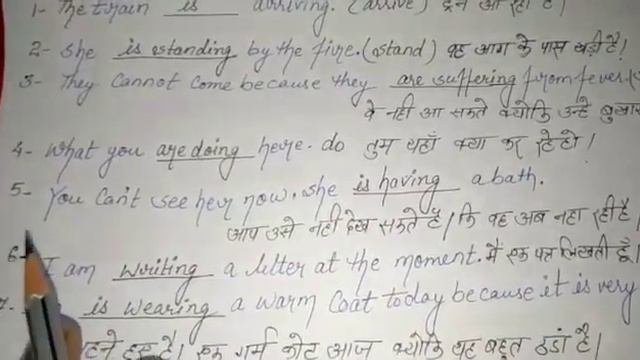 1- The train is arriving. (arrive) ट्रेन आ रही है।
2- She is standing by the fire. (stand) वह आग के पास खड़ी है।
3- They cannot come because they are suffering from fever
वे नही आ सकते क्योकि उन्हे बुखार
4- What you are doing here. do तुम यहाँ क्या कर रहे हो।
5- You can't see her now. She is having a bath.
आप उसे नही देख सकते है। कि वह अब नहा रही है
6- I am writing a letter at the moment. मै एक पत्र लिखती हूँ।
7. is wearing a warm coat today because it is very
है। एक गर्म कोट आज क्योकि यह बहुत ठंडा है।